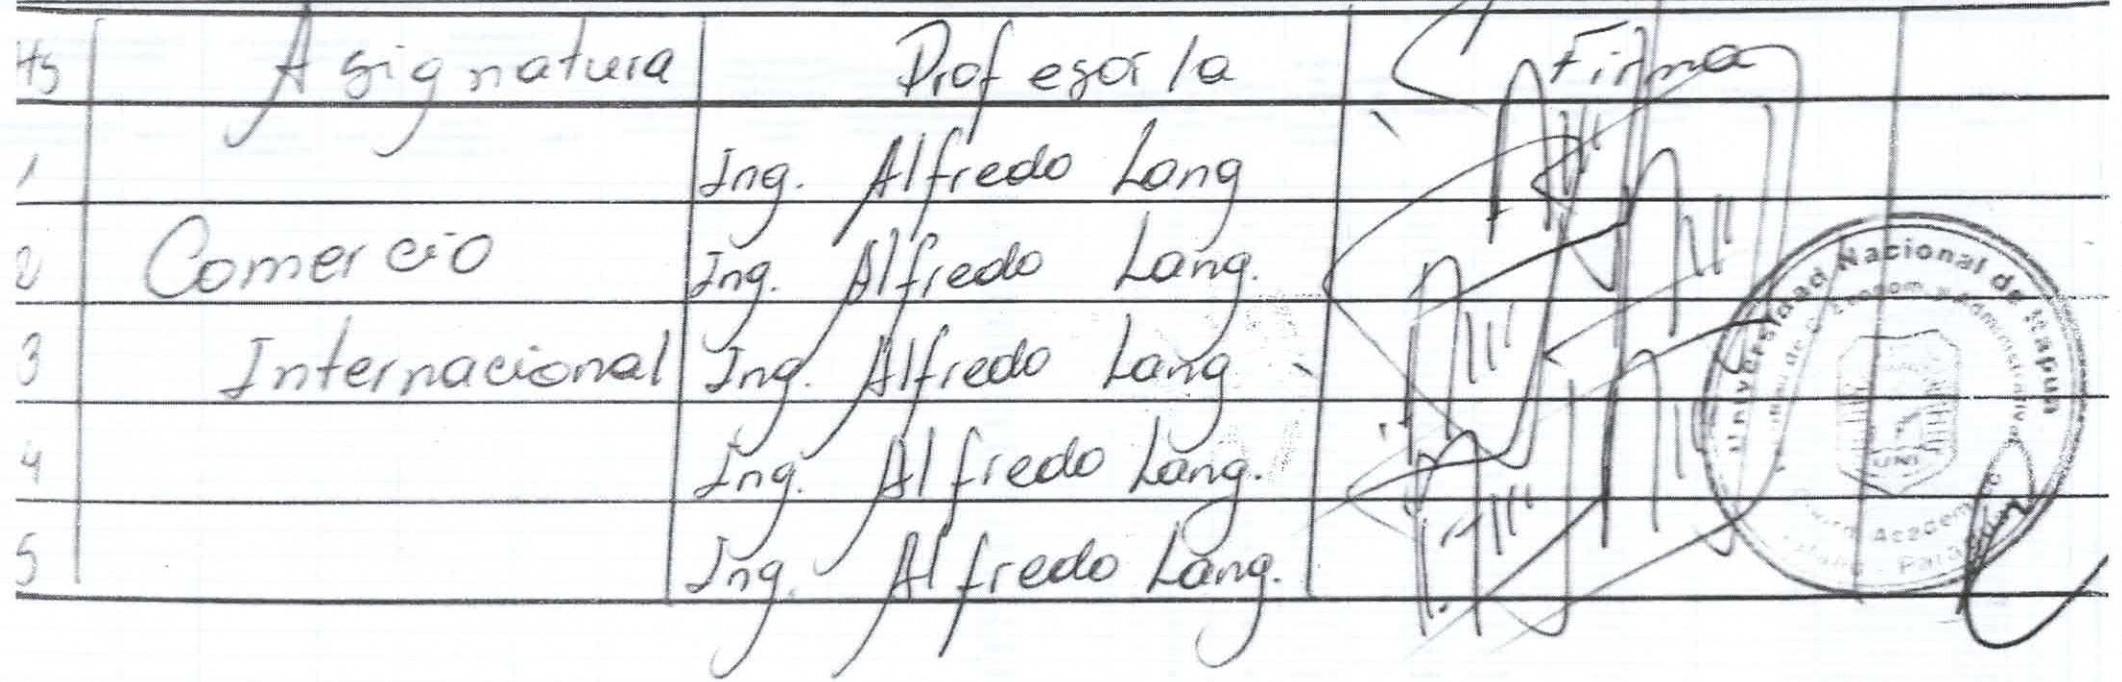 Hs Asignatura Profesor/a Firma
1 Ing. Alfredo Lang
2 Comercio Ing. Alfredo Lang.
3 Internacional Ing. Alfredo Lang
4 Ing. Alfredo Lang.
5 Ing. Alfredo Lang.
Universidad Nacional de Itapua
UNI